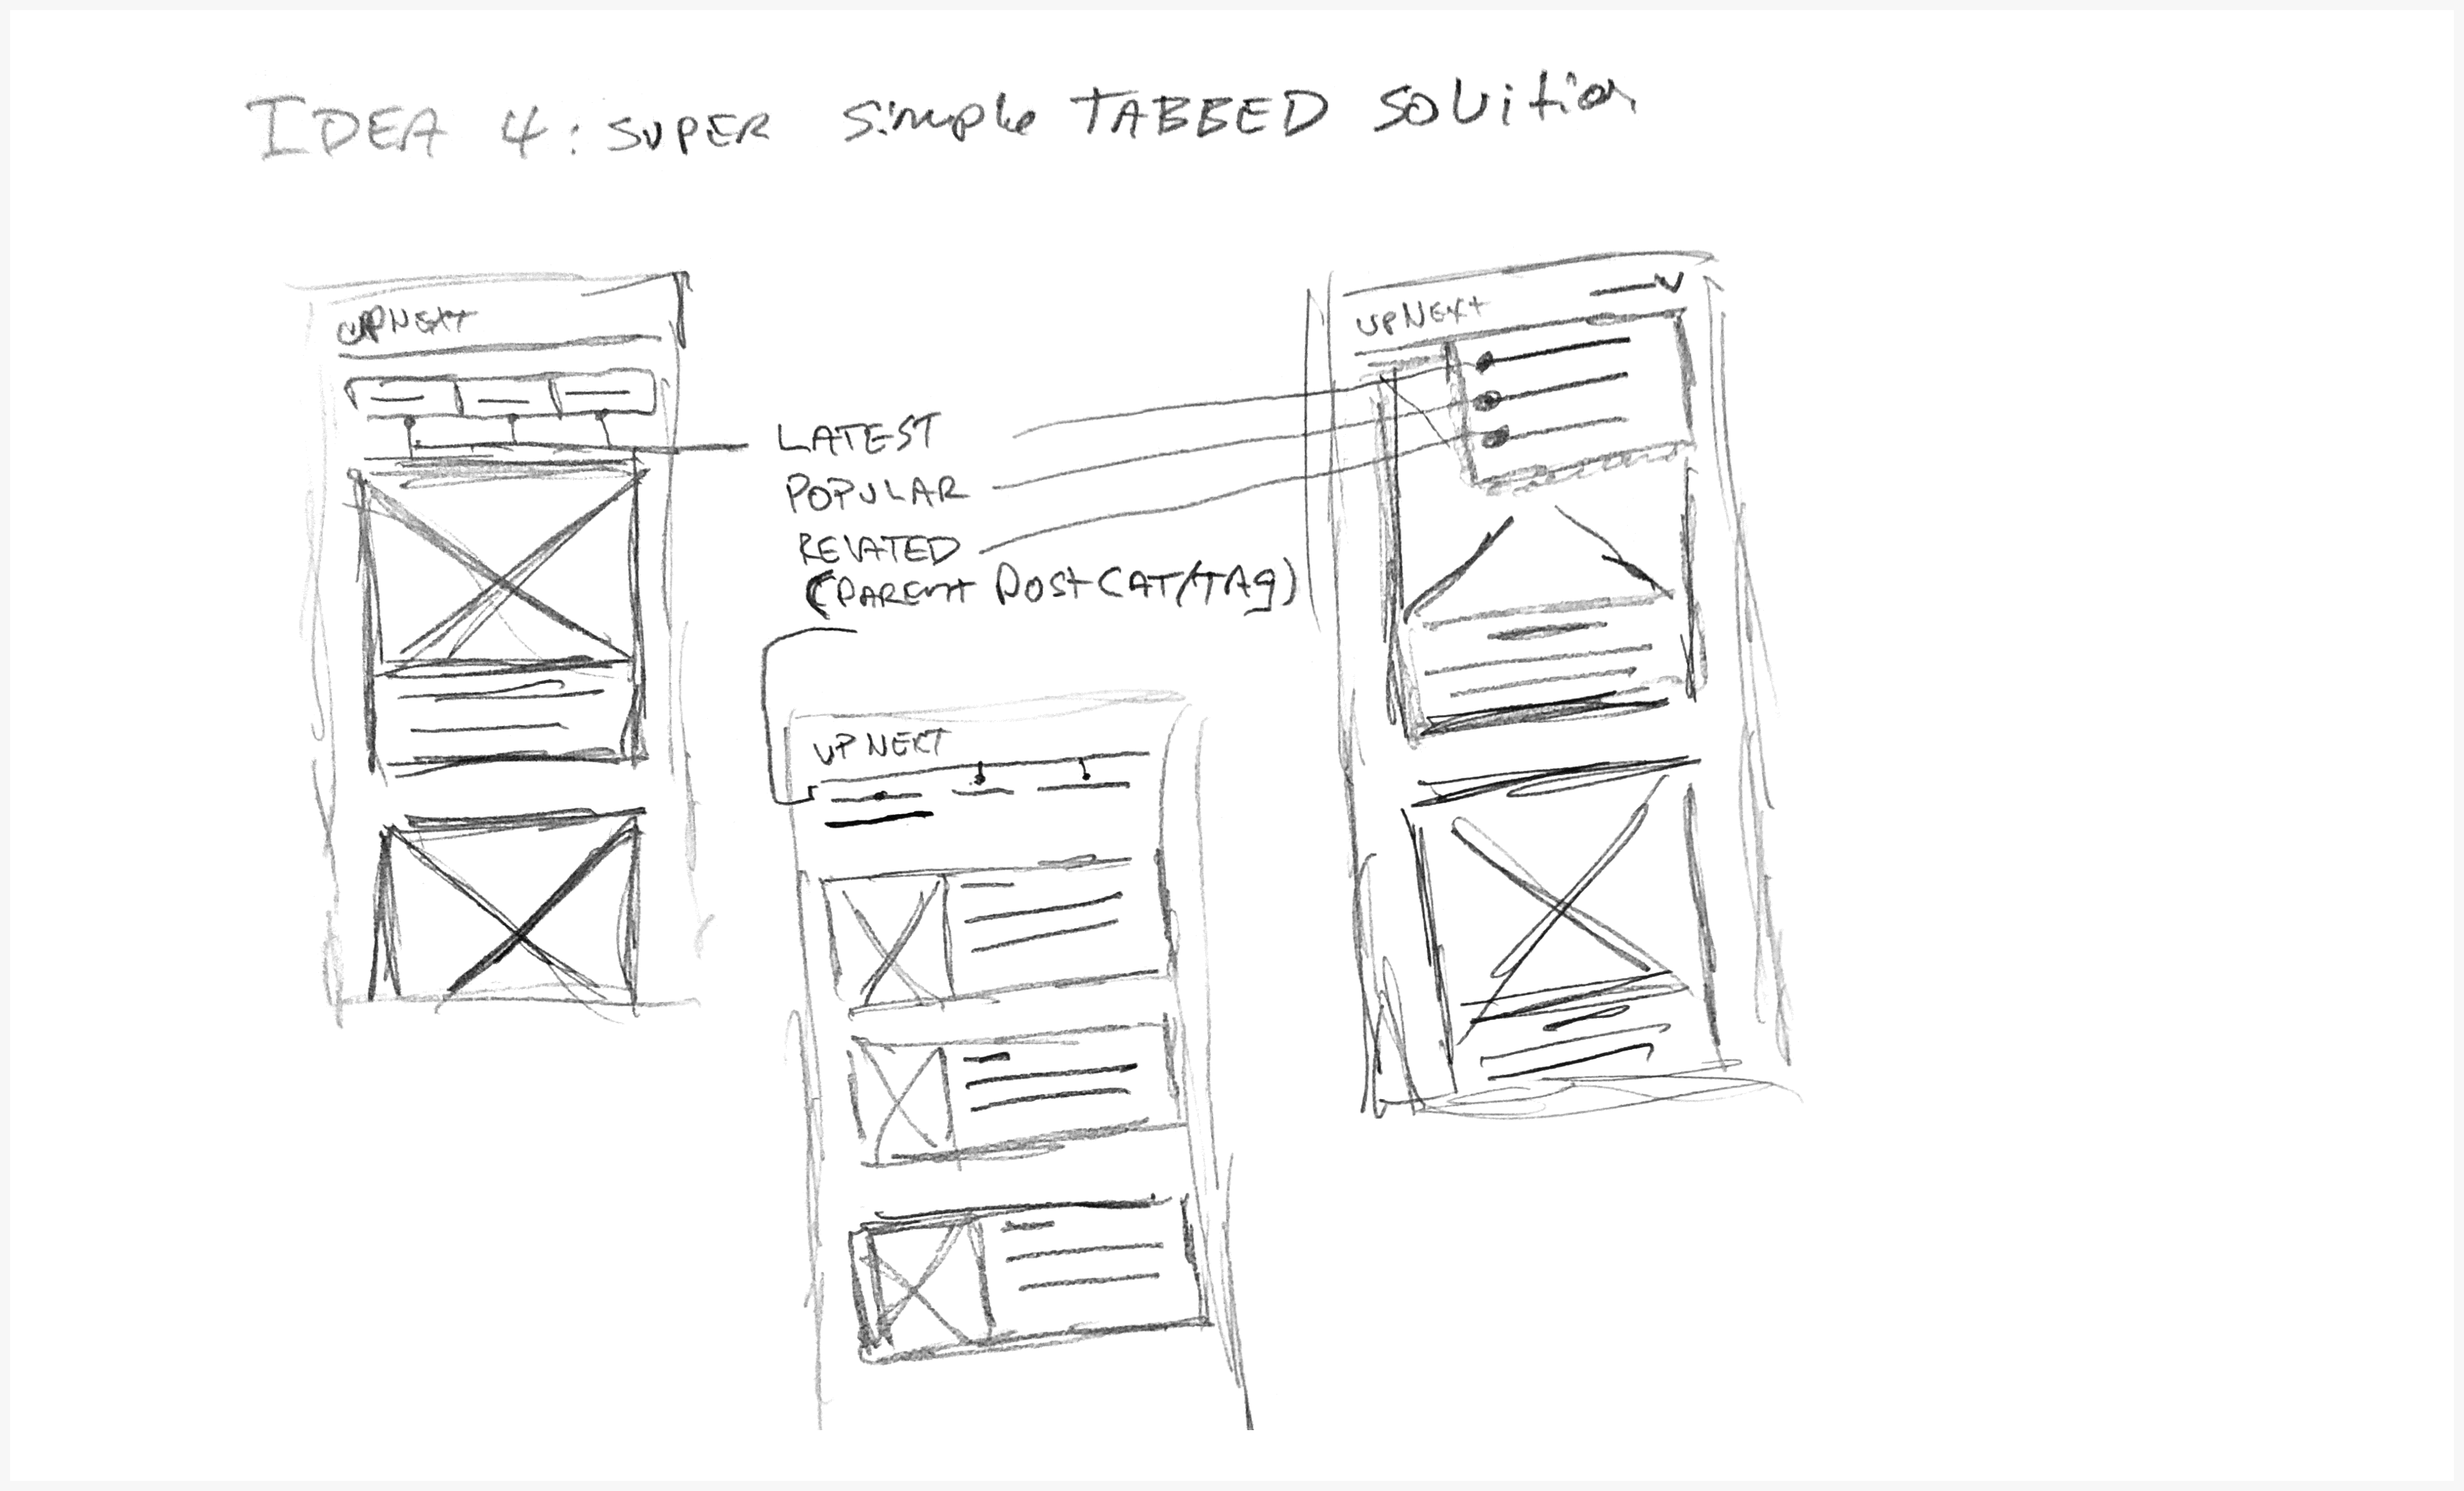 IDEA 4: SUPER Simple TABBED Solution
UP NEXT
UP NEXT
LATEST
POPULAR
RELATED
(PARENT POST CAT/TAG)
UP NEXT